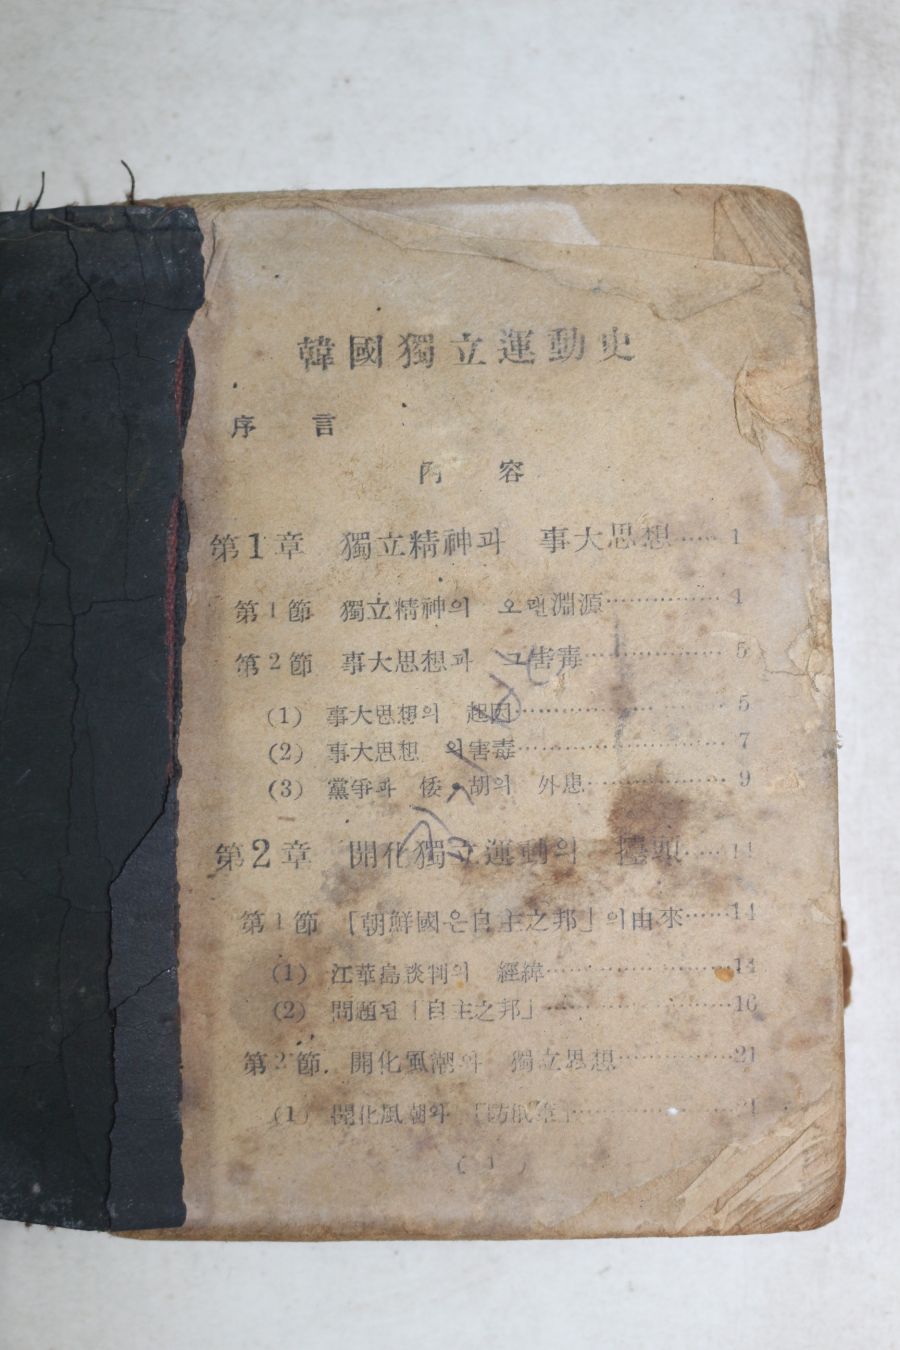 韓國獨立運動史
序言
內容
第1章 獨立精神과 事大思想…… 1
第1節 獨立精神의 오랜淵源…………… 1
第2節 事大思想과 그害毒…………… 5
(1) 事大思想의 起因…………… 5
(2) 事大思想 의害毒…………… 7
(3) 黨爭과 倭・胡의 外患…………… 9
第2章 開化獨立運動의 擡頭……14
第1節 「朝鮮國은自主之邦」의由來……14
(1) 江華島談判의 經緯……………14
(2) 問題된「自主之邦」……………16
第2節 開化風潮와 獨立思想……………21
(1) 開化風潮와
( 1 )